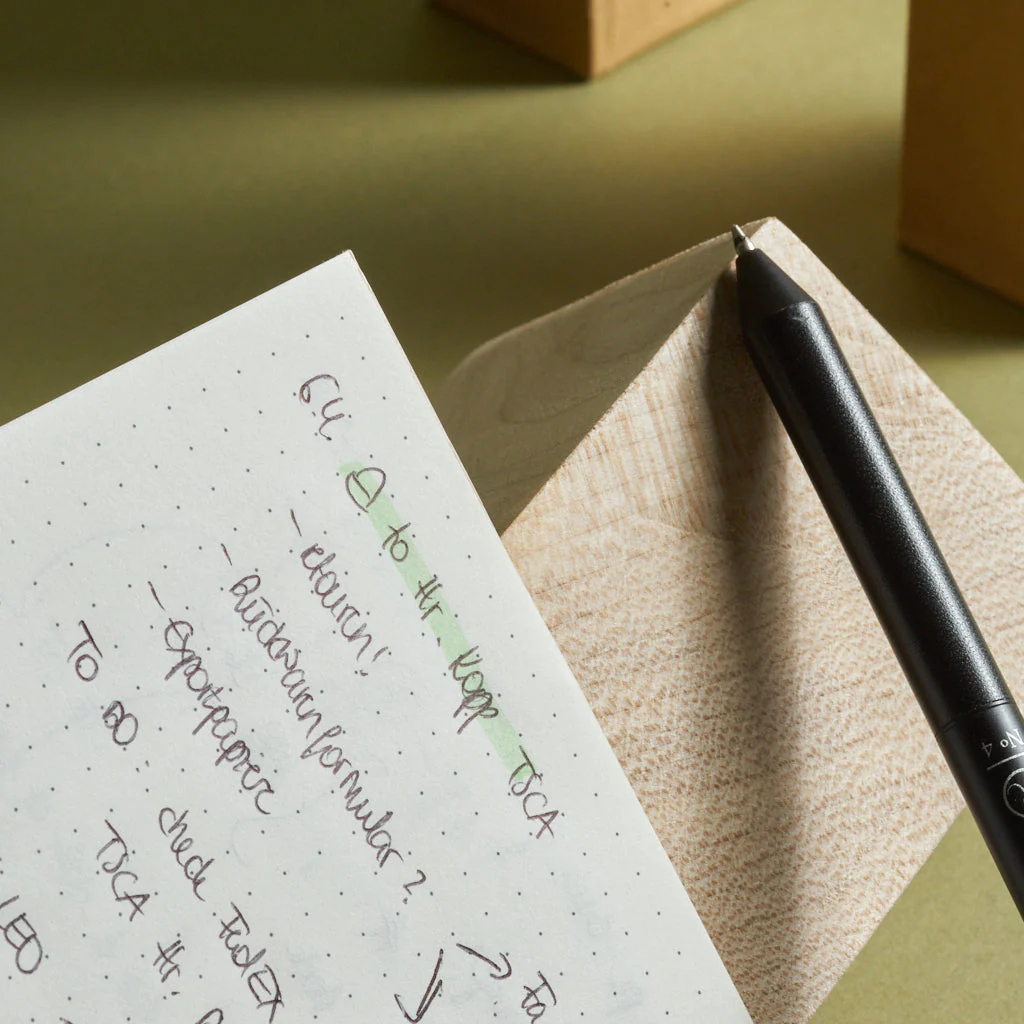 6.4.
to Hr. Kopp TSCA
- retouren!
- Rückwarenformular?
- Exportpapiere
TO DO:
check FedEx
TSCA Hr.
LEO
No 4